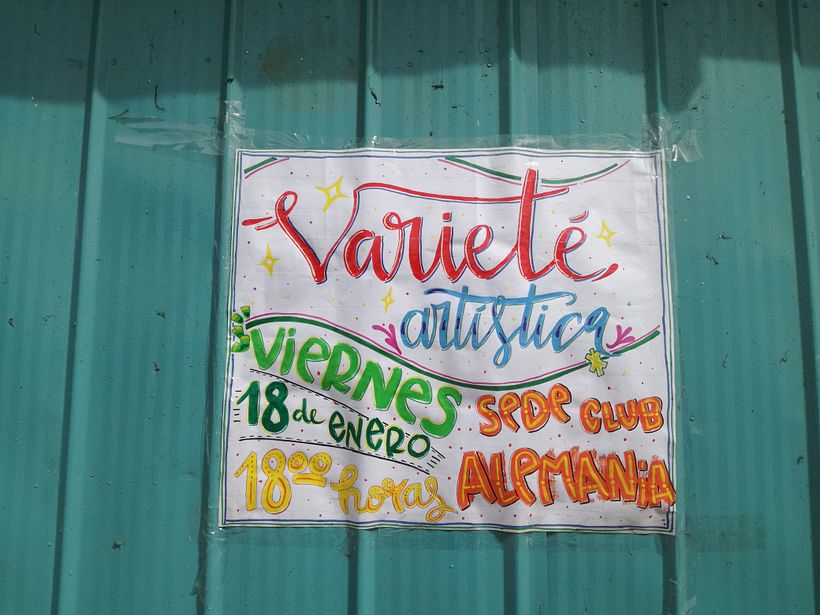 Varieté
artística
VIERNES
18 de ENERO
18⁰⁰ horas
SEDE CLUB
ALEMANIA